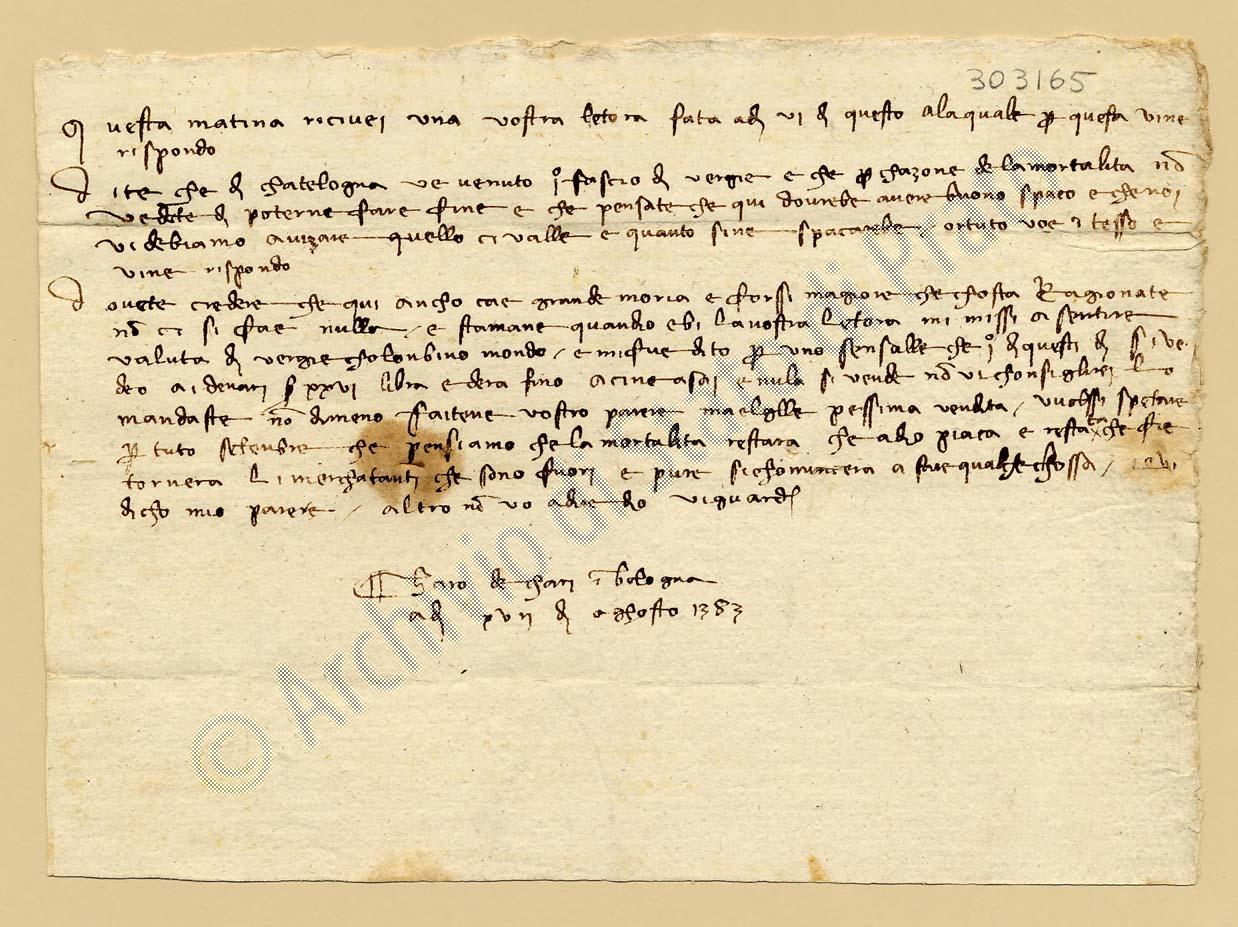 303165
Questa matina ricivei una vostra letora fata adj vj dj questo ala quale per questa vine
rispondo
dite che dj chatelogna ve venuto 1° fascio dj vergie e che per chazone de la mortalita non
vedete dj poterne fare fine e che pensate che qui dovrebe avere buono spaco e che noi
vi debiamo avizare quello ci valle e quanto sine spacarebe ortuto
vine rispondo
dovete credere che qui ancho cae grande moria e forssi magiore che chosta Ragionate
non ci si fae nulla / e stamane quando ebi la vostra letora mi missi a sentire
valuta dj vergie cholonbino mondo / e mi fue dito per uno sensalle che 1° dj questi dj si ve
deo a denari xxvj libra ed era fino e nula si vende non vi chonsiglirei lo
mandaste non dimeno faitene vostro parere pessima vendita / vuolssi spetare
per tuto setenbre che pensiamo che la mortalita restara che a dio piaca e restata che fie
tornera li merchatanti che sono fuori e pure si chomincera a fare qualche chossa /
dicho mio parere / altro non vo a dire dio vi guardj
de chari in bologna
adj xvij dj aghosto 1383
© Archivio di Stato di Prato